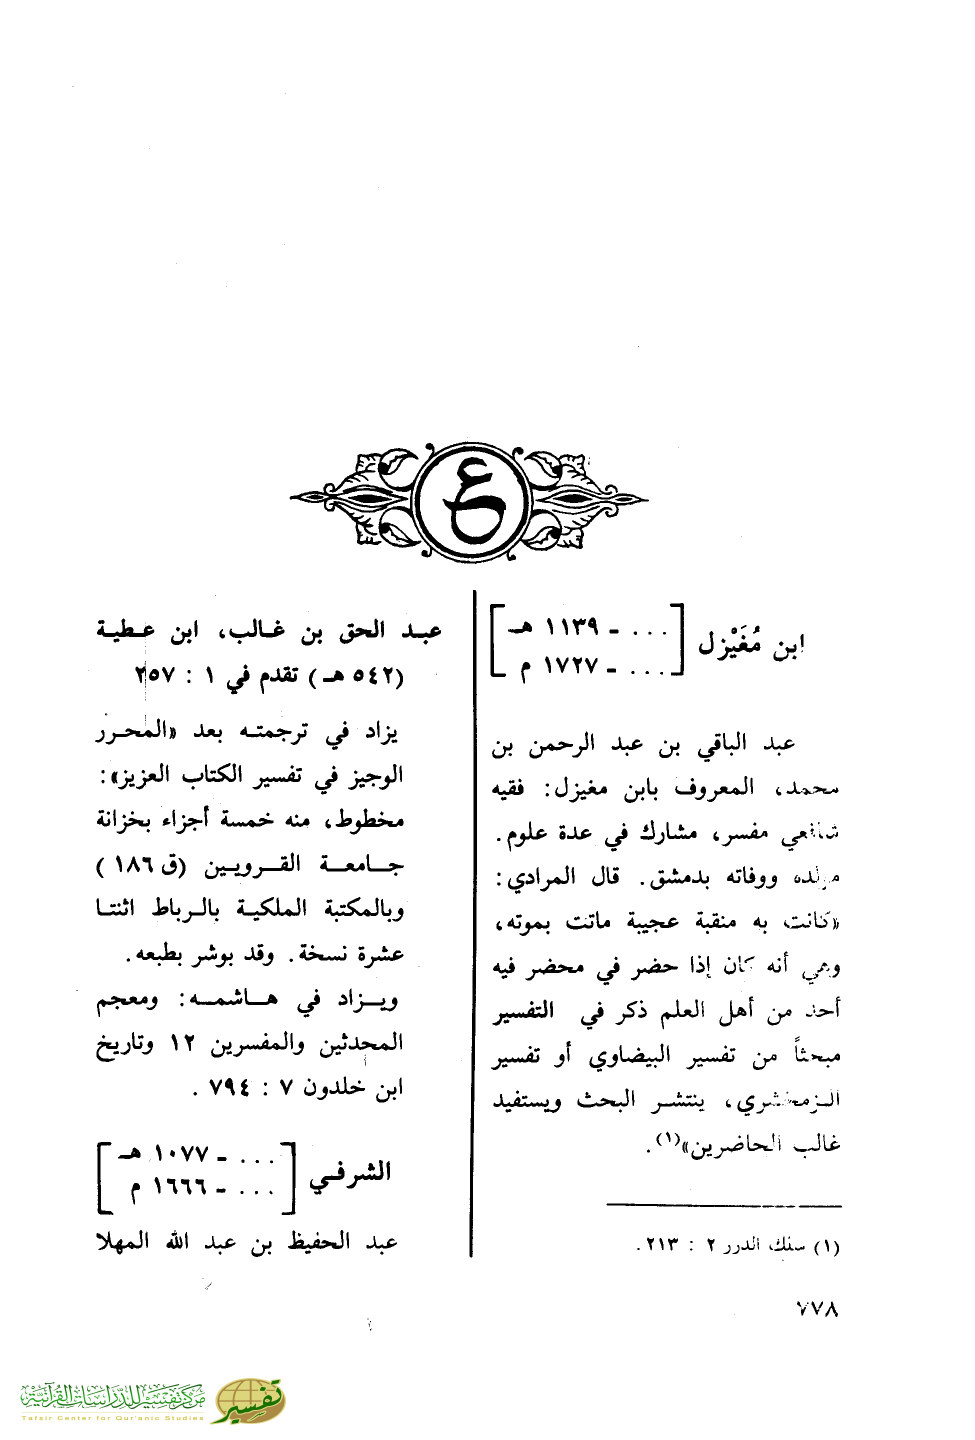 ع
ابن مُغَيْزل [ ... - ١١٣٩ هـ
... - ١٧٢٧ م ]
عبد الباقي بن عبد الرحمن بن
محمد، المعروف بابن مغيزل: فقيه
شافعي مفسر، مشارك في عدة علوم.
مولده ووفاته بدمشق. قال المرادي:
«كانت به منقبة عجيبة ماتت بموته،
وهي أنه كان إذا حضر في محضر فيه
أحد من أهل العلم ذكر في التفسير
مبحثاً من تفسير البيضاوي أو تفسير
الزمخشري، ينتشر البحث ويستفيد
غالب الحاضرين»(١).
(١) سلك الدرر ٢ : ٢١٣.
عبد الحق بن غالب، ابن عطية
(٥٤٢ هـ) تقدم في ١ : ٢٥٧
يزاد في ترجمته بعد «المحرر
الوجيز في تفسير الكتاب العزيز»:
مخطوط، منه خمسة أجزاء بخزانة
جامعة القرويين (ق ١٨٦)
وبالمكتبة الملكية بالرباط اثنتا
عشرة نسخة. وقد بوشر بطبعه.
ويزاد في هاشمه: ومعجم
المحدثين والمفسرين ١٢ وتاريخ
ابن خلدون ٧ : ٧٩٤ .
الشرفي [ ... - ١٠٧٧ هـ
... - ١٦٦٦ م ]
عبد الحفيظ بن عبد الله المهلا
٧٧٨
مركز تفسير للدراسات القرآنية
Tafsir Center for Qur'anic Studies
تفسير